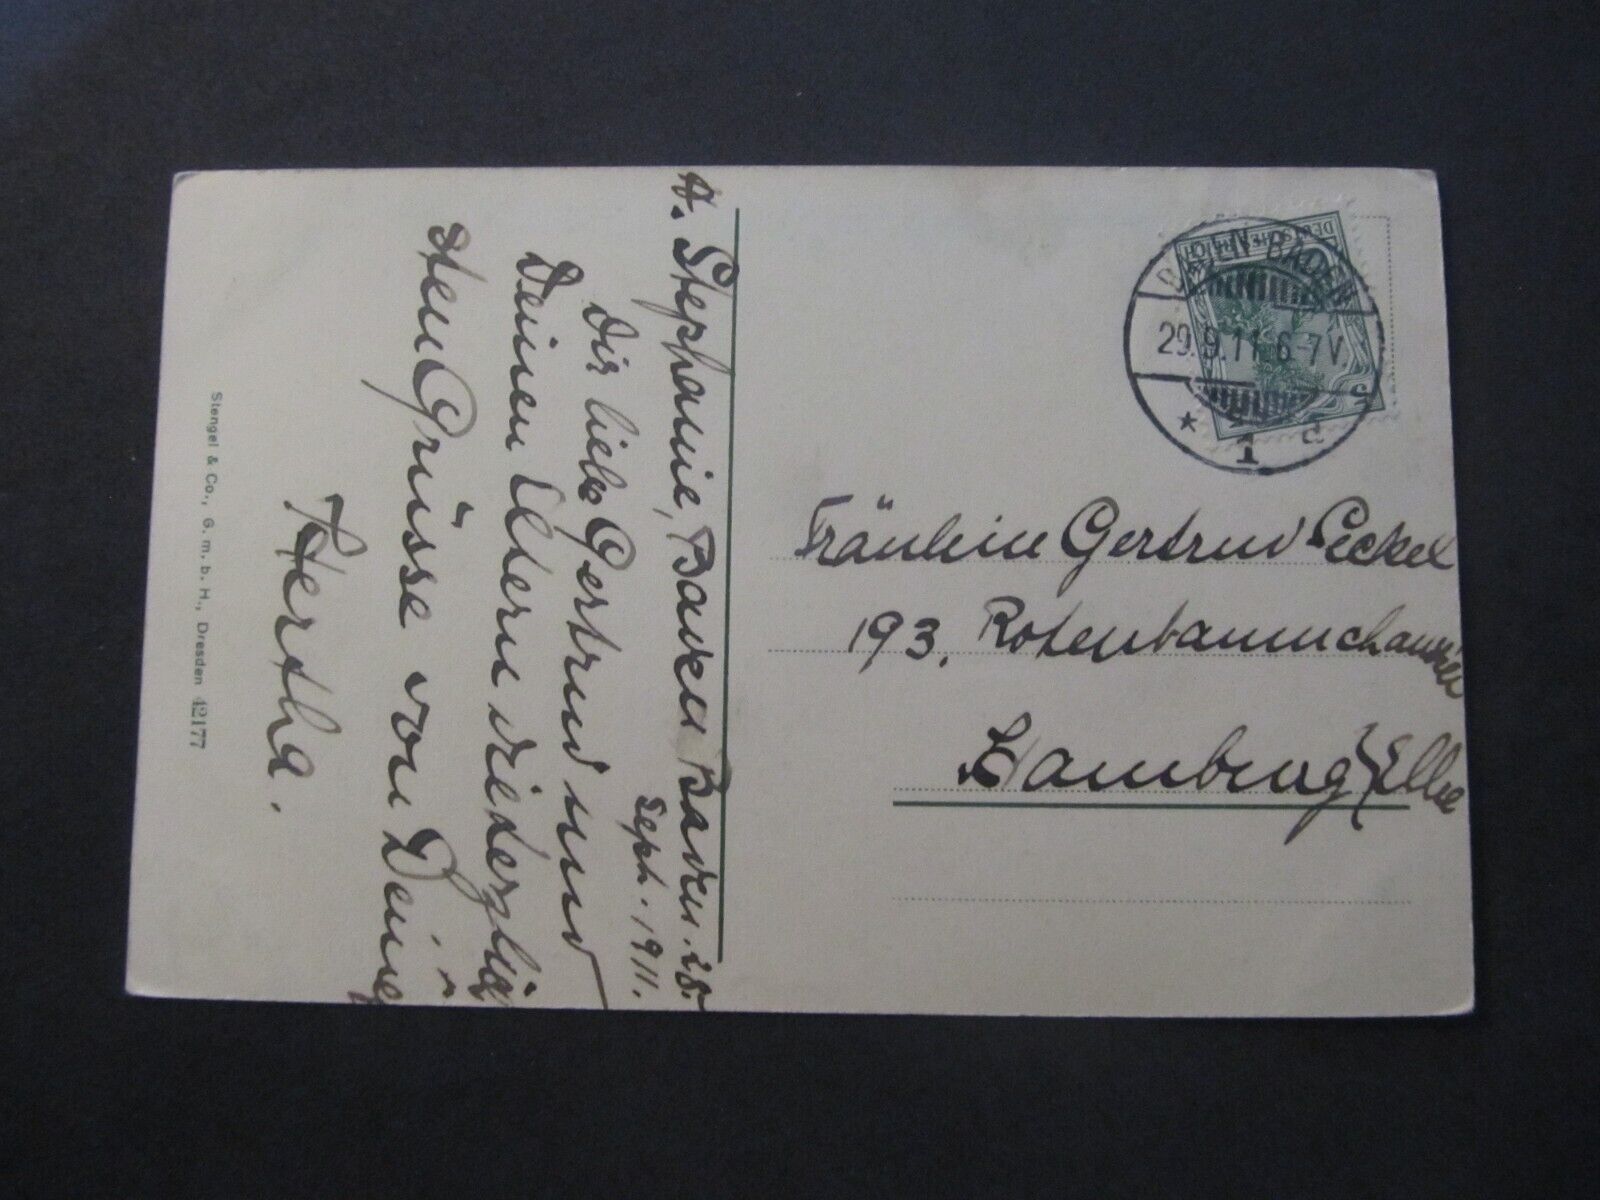 H. Stephanie, Baden Baden. 28.
Sept. 1911.
Dir liebe Gertrud und
Deinen Eltern die herzlich
sten Grüsse von Deiner
Hertha.
Stengel & Co., G. m. b. H., Dresden 42177
DEUTSCHES REICH
BADEN-BADEN
29.9.11. 6-7V.
* 1 d
Fräulein Gertrud Peckel
193. Rotenbaumchaussee
Hamburg/Elbe